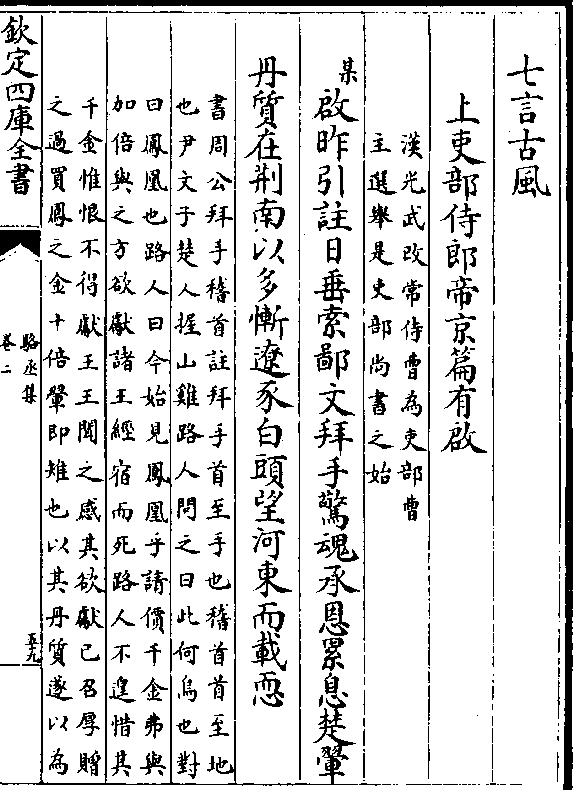 七言古風
上吏部侍郎帝京篇有啟
漢光武改常侍曹為吏部曹
主選舉是吏部尚書之始
某啟昨引註日垂索鄙文拜手驚魂承恩累息楚翬
丹質在荆南以多慚遼豕白頭望河東而載恧
書周公拜手稽首註拜手首至手也稽首首至地
也尹文子楚人握山雞路人問之曰此何鳥也對
曰鳳凰也路人曰今始見鳳凰乎請價千金弗與
加倍與之方欲獻諸王經宿而死路人不遑惜其
千金惟恨不得獻王王聞之感其欲獻己召厚贈
之過買鳳之金十倍翬即雉也以其丹質遂以為
欽定四庫全書
駱丞集
卷二
五九